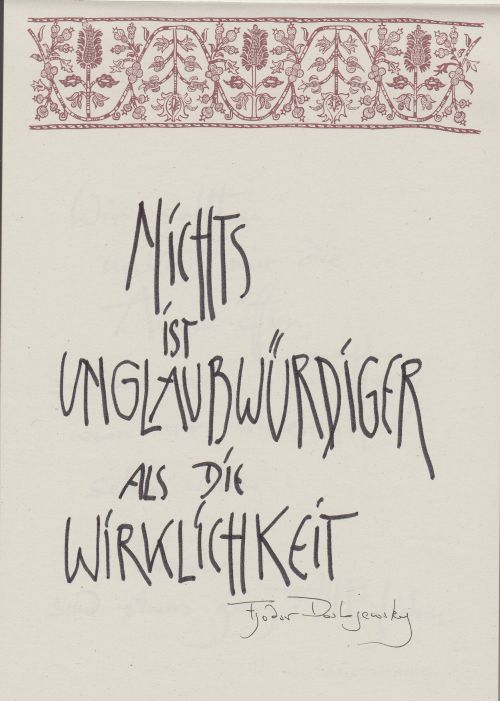 NiCHTS
iST
UNGLAUBWÜRDiGER
ALS DiE
WiRKLiCHKEiT
Fjodor Dostojewsky